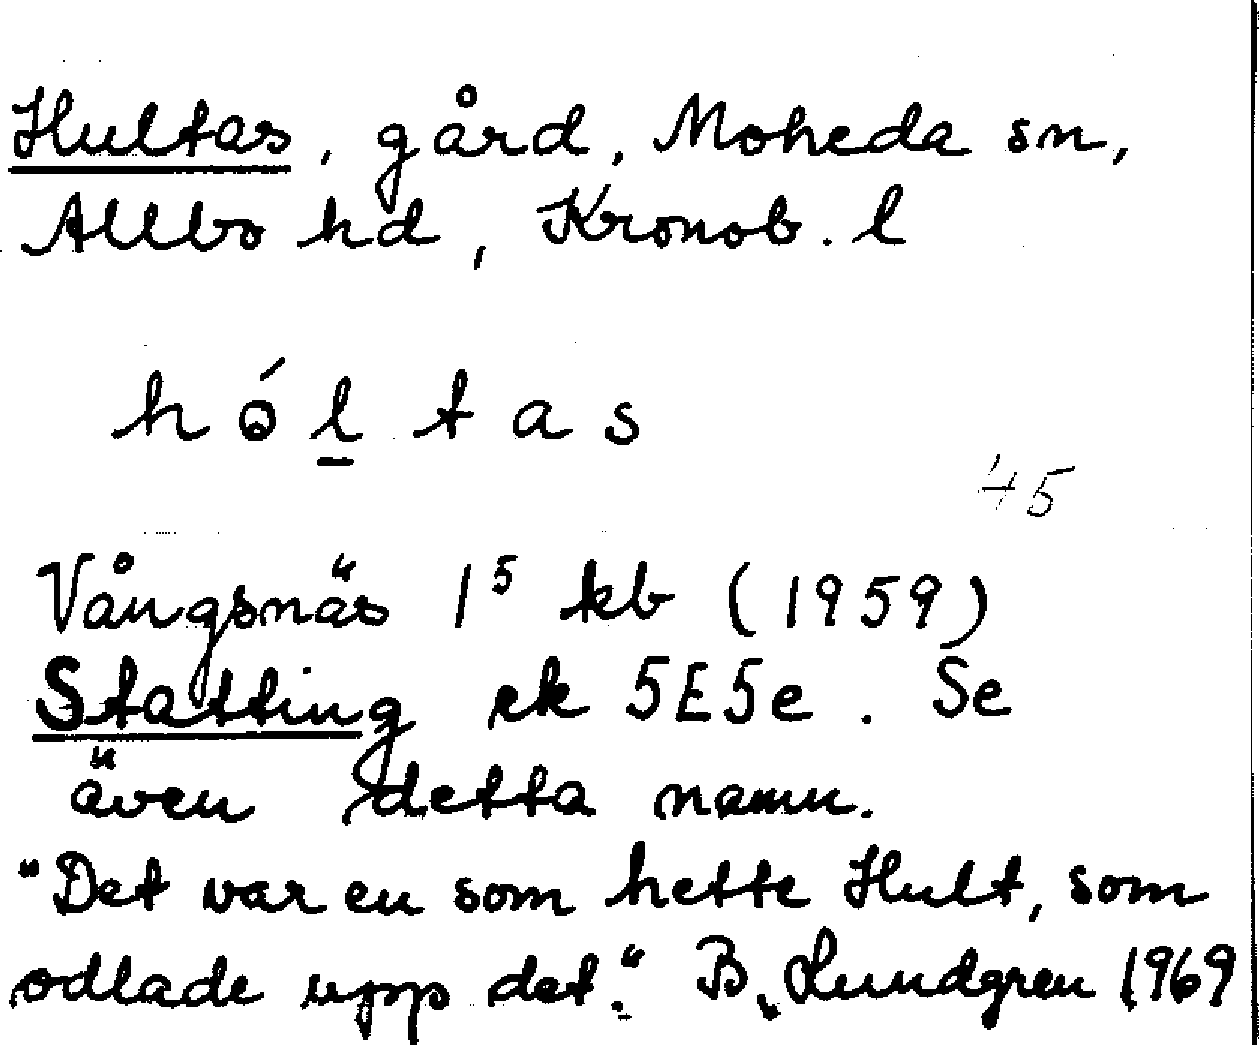 Hultas, gård, Moheda sn,
Allbo hd, Kronob. l
hóḻtas
45
Vångsnäs 1⁵ kb (1959)
Statting ek 5E5e. Se
även detta namn.
"Det var en som hette Hult, som
odlade upp det." B. Lundgren 1969